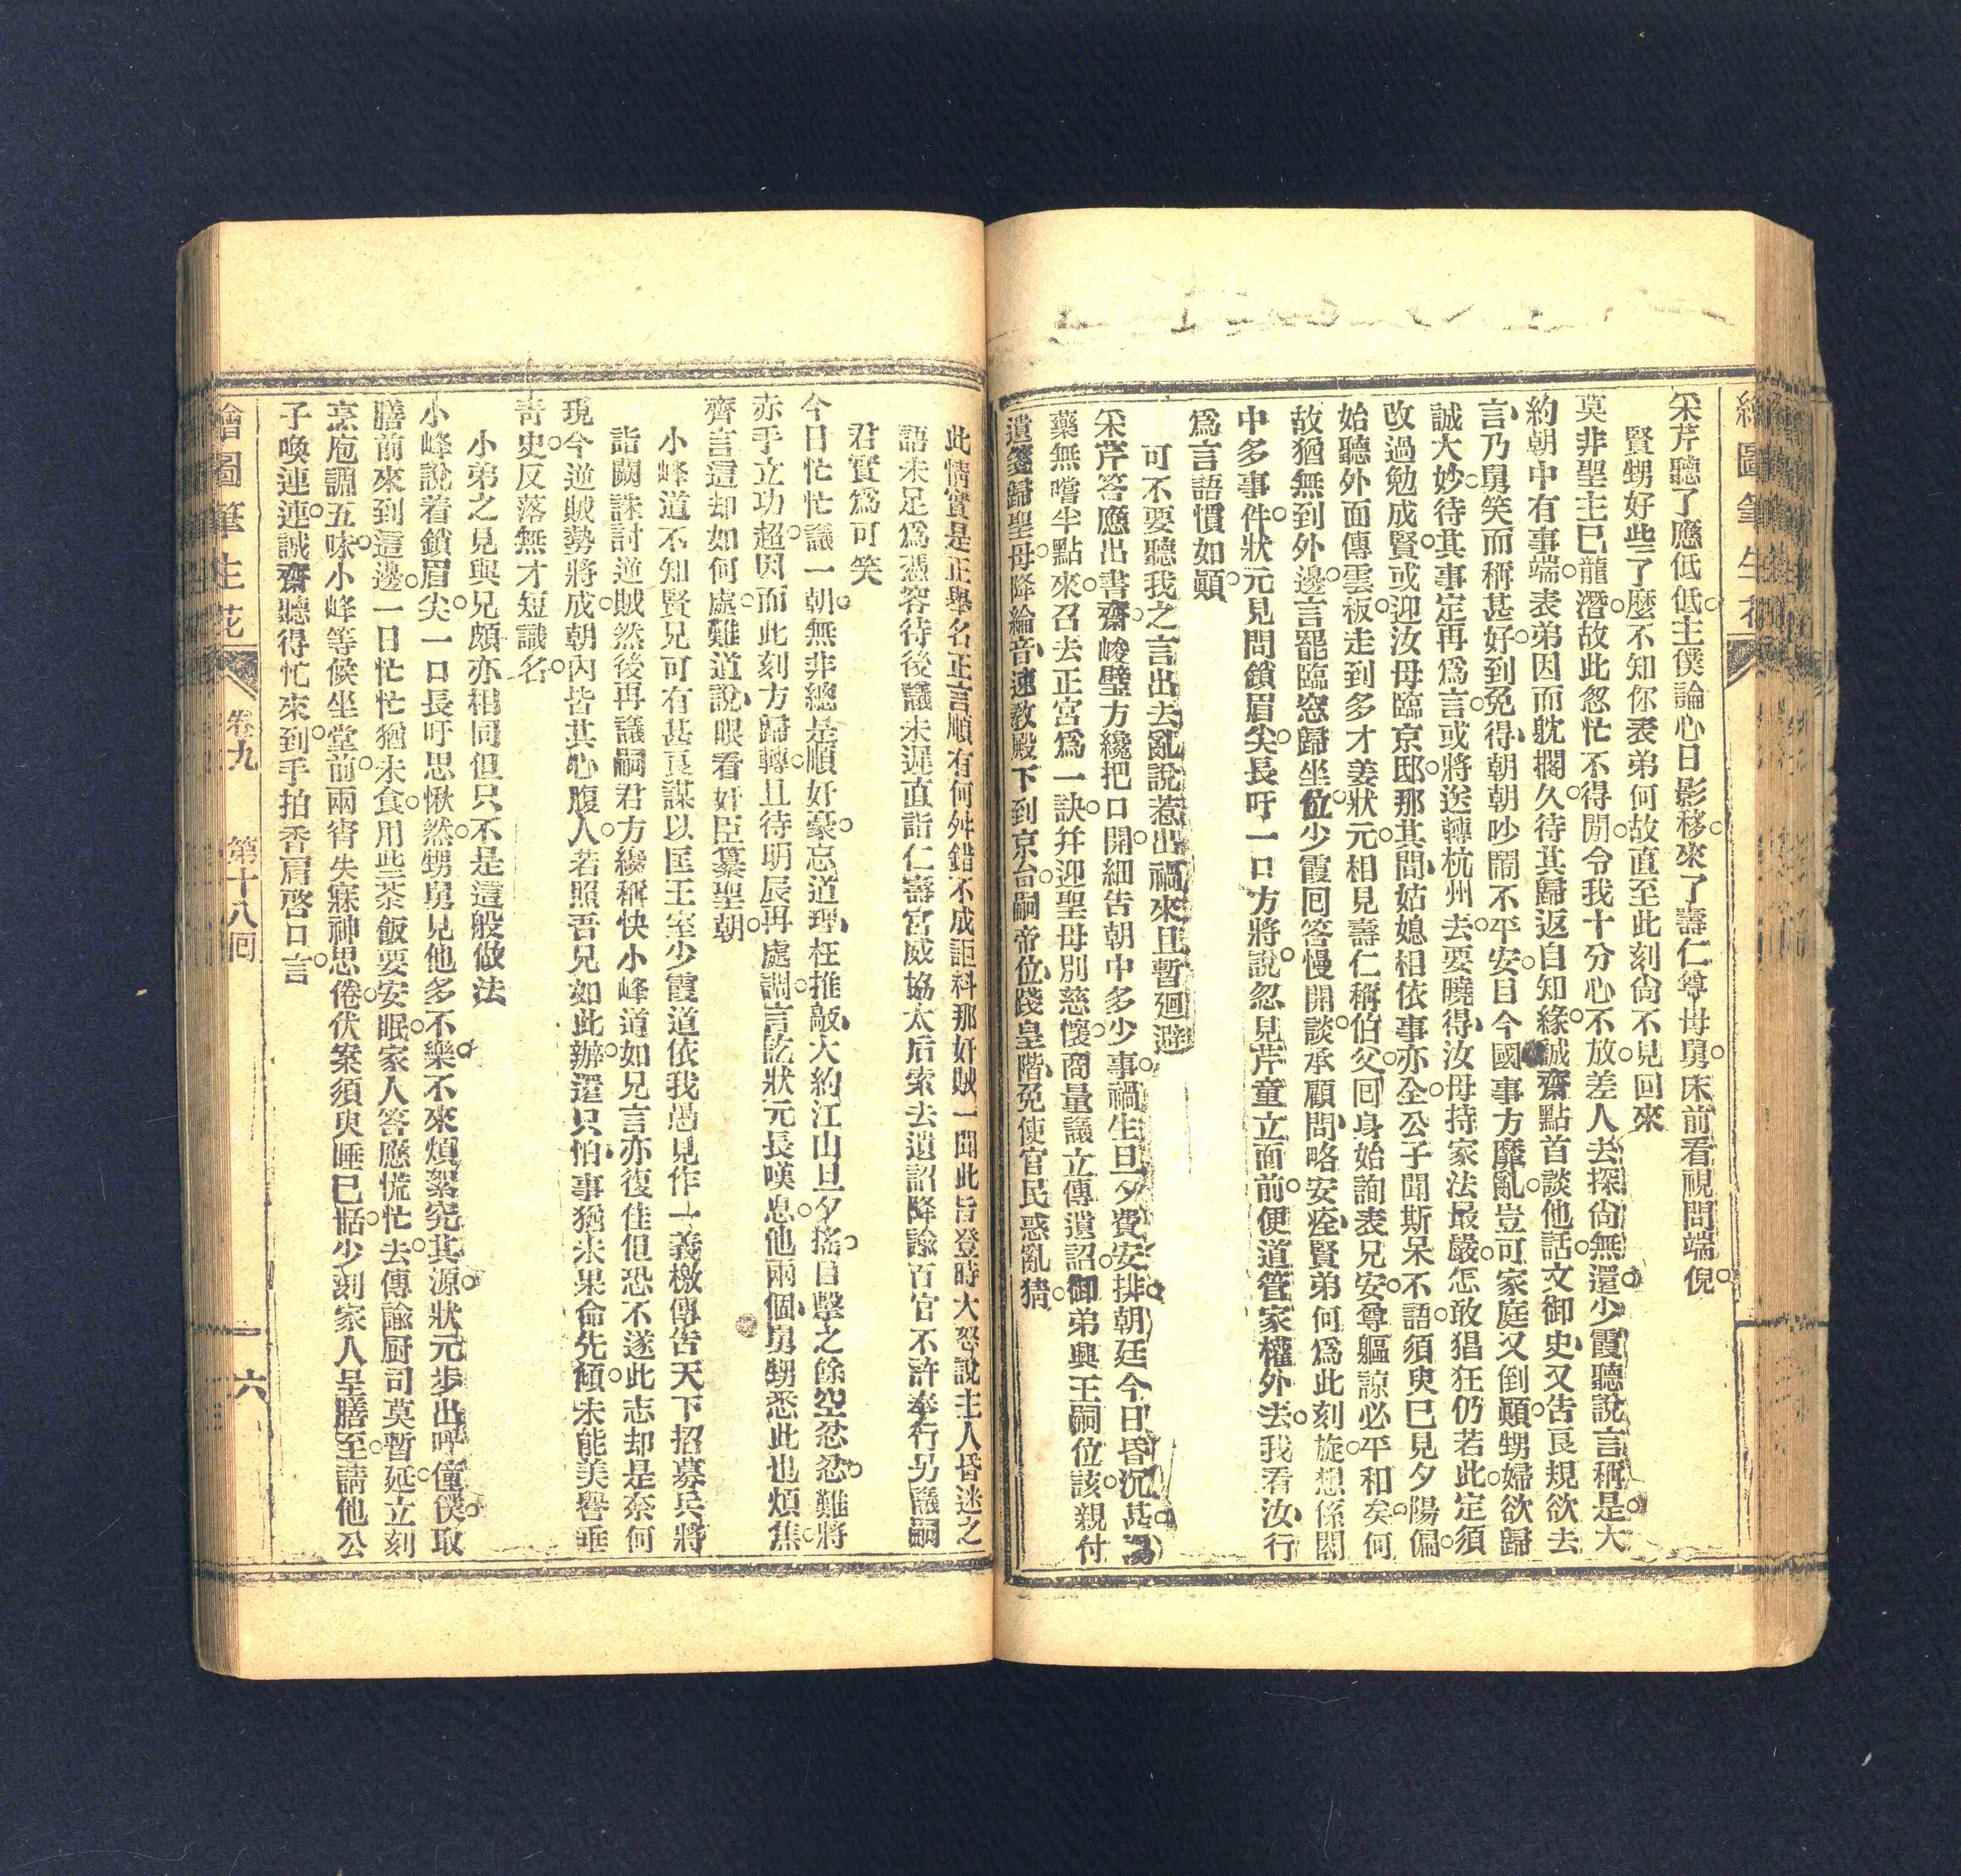 繪圖筆生花
采芹聽了應低低○主僕論心日影移○來了壽仁尊母舅○床前看視問端倪○
賢甥好些了麼不知你表弟何故直至此刻尙不見回來
莫非聖主已龍潛○故此怱忙不得閒○令我十分心不放○差人去探尙無還○少霞聽說言稱是○大
約朝中有事端○表弟因而躭擱久○待其歸返自知緣○誠齋點首談他話○文御史、又告良規欲去
言、乃舅笑而稱甚好○到免得、朝朝吵鬧不平安○目今國事方靡亂○豈可家庭又倒顚○甥婦欲歸
誠大妙○待其事定再爲言○或將送轉杭州去○要曉得、汝母持家法最嚴○怎敢猖狂仍若此○定須
改過勉成賢○或迎汝母臨京邸○那其間、姑媳相依事亦全○公子聞斯呆不語○須臾已見夕陽偏○
始聽外面傳雲板○走到多才姜狀元○相見壽仁稱伯父○回身始詢表兄安○尊軀諒必平和矣○何
故猶無到外邊○言罷臨窓歸坐位○少霞回答慢開談○承顧問、略安痊○賢弟何爲此刻旋○想係閣
中多事件○狀元見問鎖眉尖○長吁一口方將說○忽見芹童立面前○便道管家權外去○我看汝、行
爲言語慣如顚○
可不要聽我之言出去亂說惹出禍來且暫廻避
采芹答應出書齋○峻璧方纔把口開○細告朝中多少事○禍生旦夕費安排○朝廷今日昏沉甚○湯
藥無嚐半點來○召去正宮爲一訣○幷迎聖母別慈懷○商量議立傳遺詔○御弟興王嗣位該○親付
遺箋歸聖母○降綸音、速敎殿下到京台○嗣帝位、踐皇階○免使官民惑亂猜○
此情實是正擧名正言順有何舛錯不成詎料那奸賊一聞此旨登時大怒說主人昏迷之
語未足爲憑容待後議未遲直詣仁壽宮威協太后索去遺詔降諭百官不許奉行另議嗣
君實爲可笑
今日忙忙議一朝○無非總是順奸豪○忘道理、枉推敲○大約江山旦夕搖○目擊之餘空忿忿○難將
赤手立功超○因而此刻方歸轉○且待明辰再處調○言訖狀元長嘆息○他兩個、舅甥悉此也煩焦○
齊言這却如何處○難道說、眼看奸臣纂聖朝○
小峰道不知賢兄可有甚良謀以匡王室少霞道依我愚見作一義檄傳告天下招募兵將
詣闕誅討逆賊然後再議嗣君方纔稱快小峰道如兄言亦復佳但恐不遂此志却是奈何
現今逆賊勢將成○朝內皆其心腹人○若照吾兄如此辦○還只怕、事猶未果命先傾○未能美譽垂
靑史○反落無才短識名○
小弟之見與兄頗亦相同但只不是這般做法
小峰說着鎖眉尖○一口長吁思愀然○甥舅見他多不樂○不來煩絮究其源○狀元步出呼僮僕○取
膳前來到這邊○一日忙忙猶未食○用些茶飯要安眠○家人答應慌忙去○傳諭厨司莫暫延○立刻
烹庖調五味○小峰等候坐堂前○兩宵失寐神思倦○伏案須臾睡已恬○少刻家人呈膳至○請他公
子喚連連○誠齋聽得忙來到○手拍香肩啓口言○
繪圖筆生花
卷九
第十八囘
六